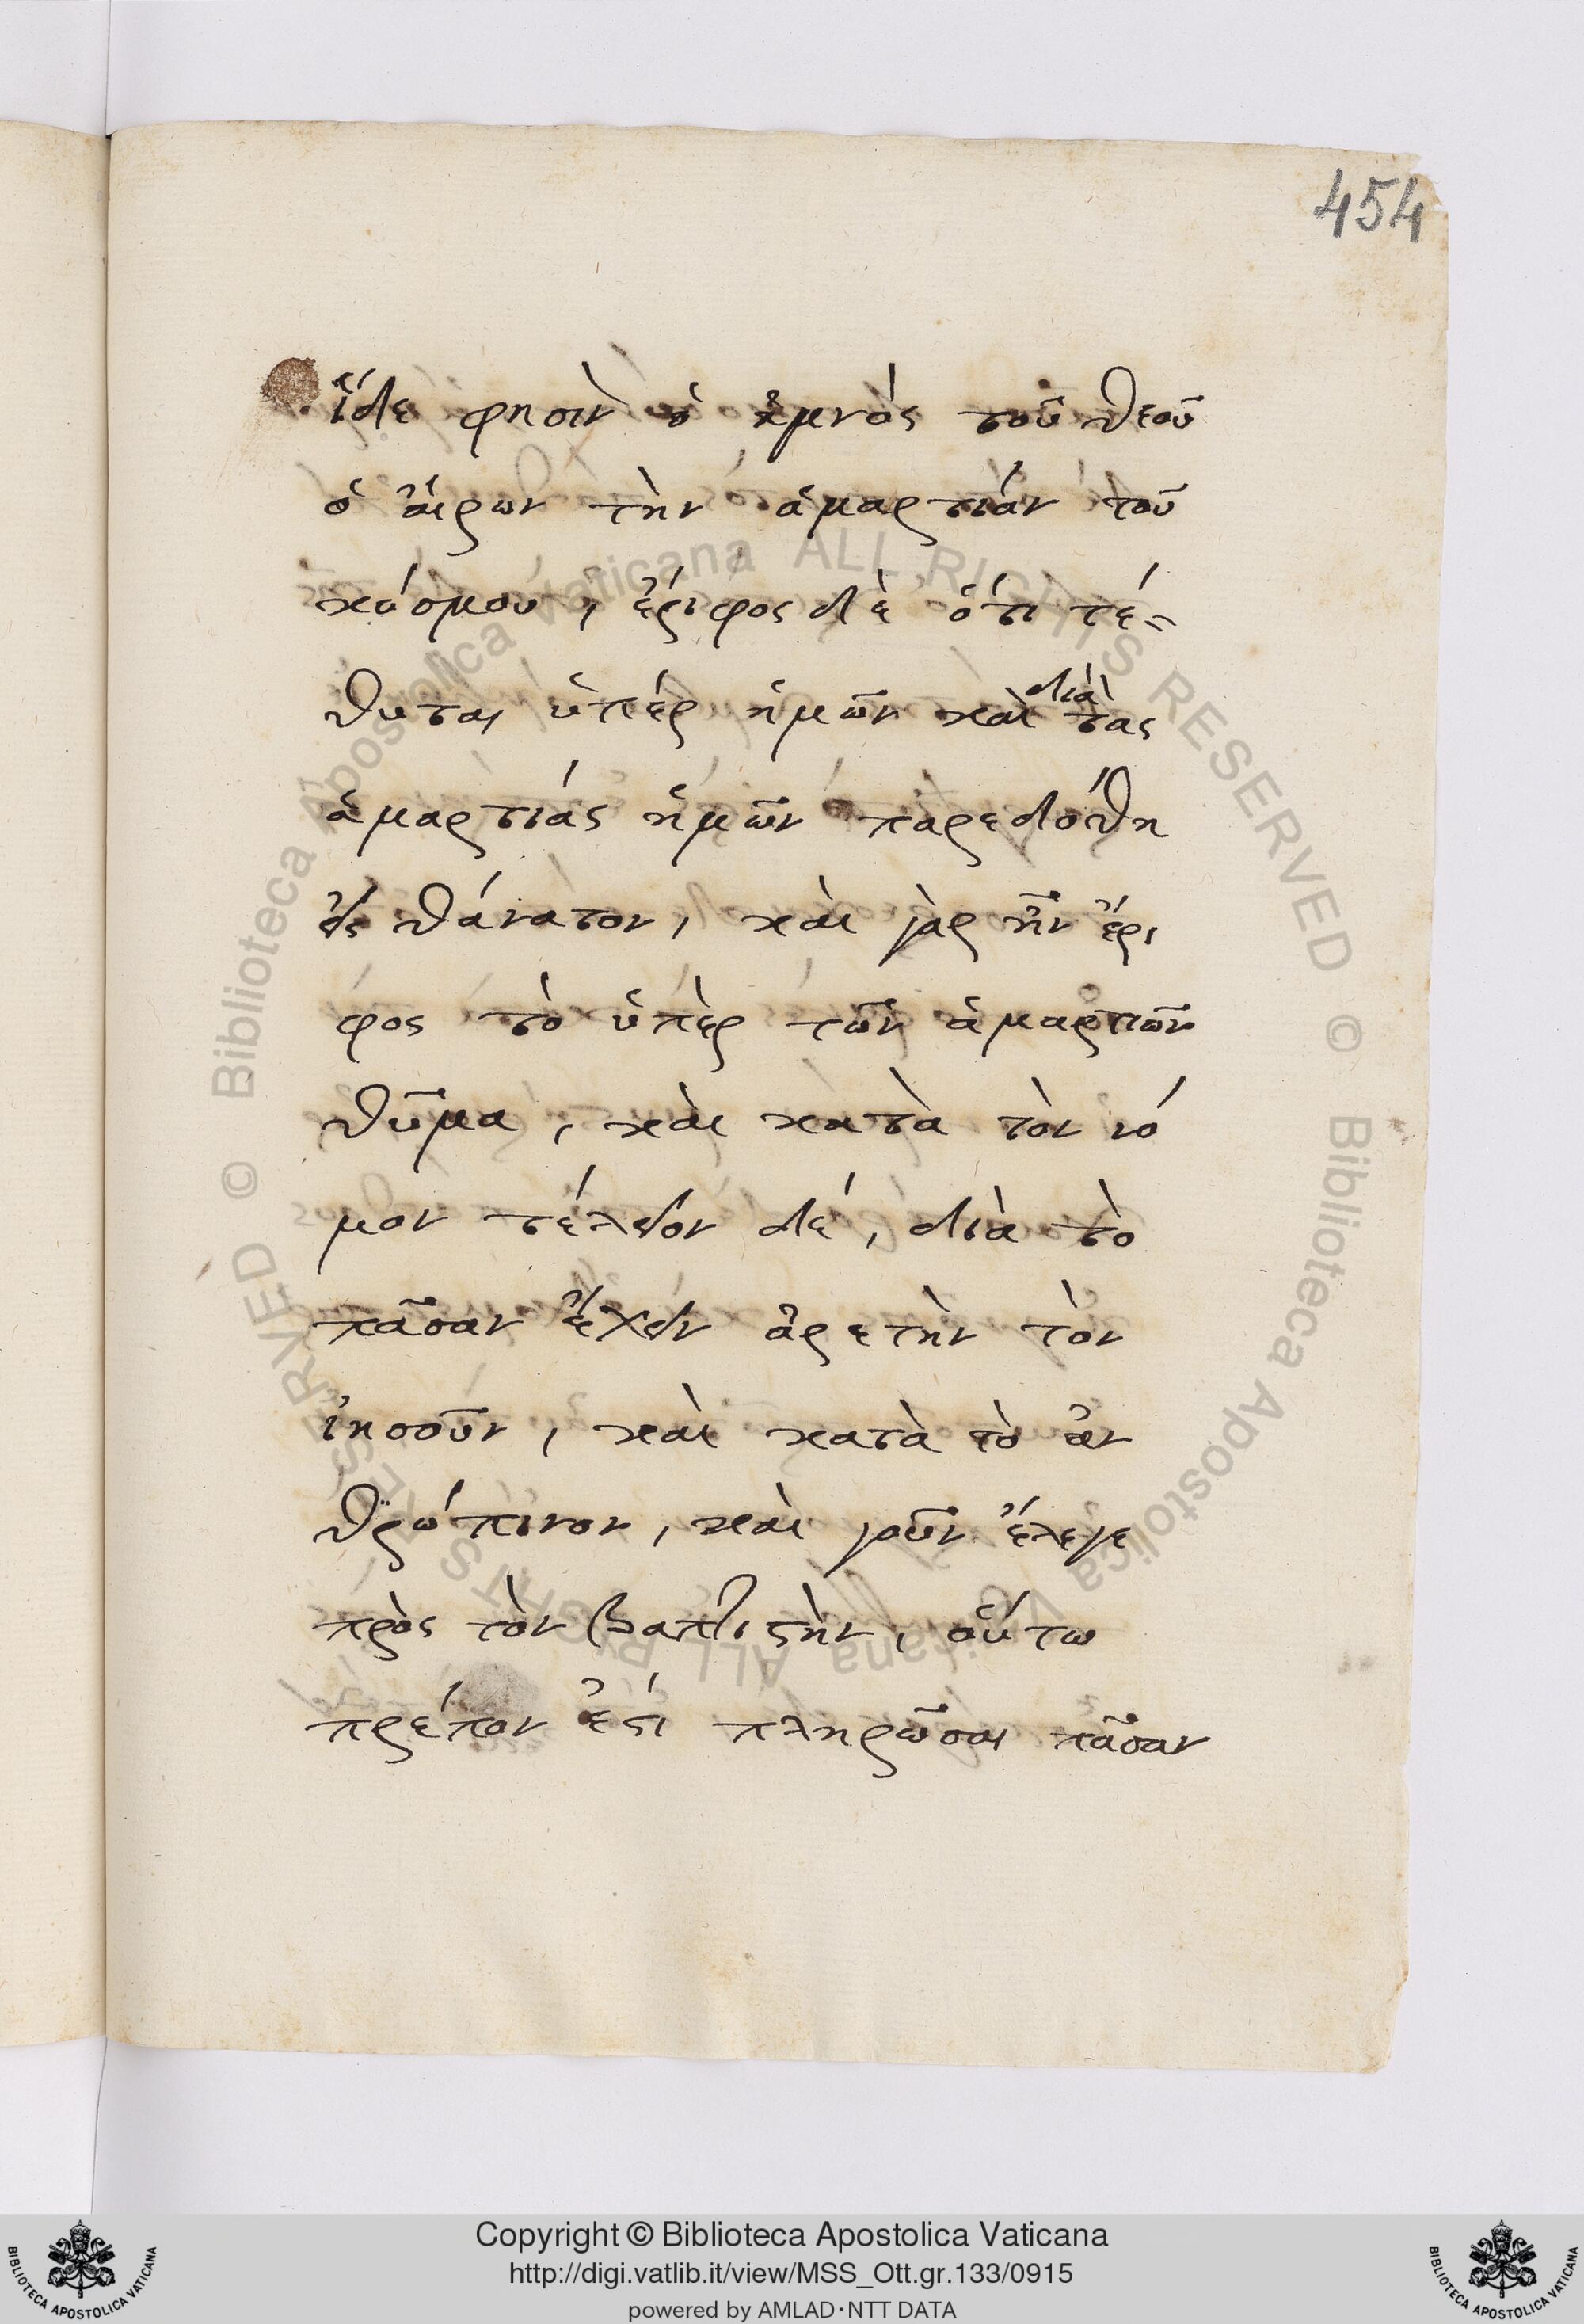 454
ἴδε φησὶν ὁ ἀμνὸς τοῦ θεοῦ
ὁ αἴρων τὴν ἁμαρτίαν τοῦ
κόσμου, ἔριφος δὲ ὅτι τέ-
θυται ὑπὲρ ἡμῶν καὶ διὰ τὰς
ἁμαρτίας ἡμῶν παρεδόθη
εἰς θάνατον, καὶ γὰρ ἦν ἔρι
φος τὸ ὑπὲρ τῶν ἁμαρτιῶν
θῦμα, καὶ κατὰ τὸν νό
μον τέλειον δέ, διὰ τὸ
πᾶσαν ἔχειν ἀρετὴν τὸν
ἰησοῦν, καὶ κατὰ τὸ ἀν
θρώπινον, καὶ γοῦν ἔλεγε
πρὸς τὸν βαπτιστὴν, οὕτω
πρέπον ἐστὶ πληρῶσαι πᾶσαν
© Biblioteca Apostolica Vaticana ALL RIGHTS RESERVED
© Biblioteca Apostolica Vaticana ALL RIGHTS RESERVED
Copyright © Biblioteca Apostolica Vaticana
http://digi.vatlib.it/view/MSS_Ott.gr.133/0915
powered by AMLAD·NTT DATA
BIBLIOTECA APOSTOLICA VATICANA
BIBLIOTECA APOSTOLICA VATICANA